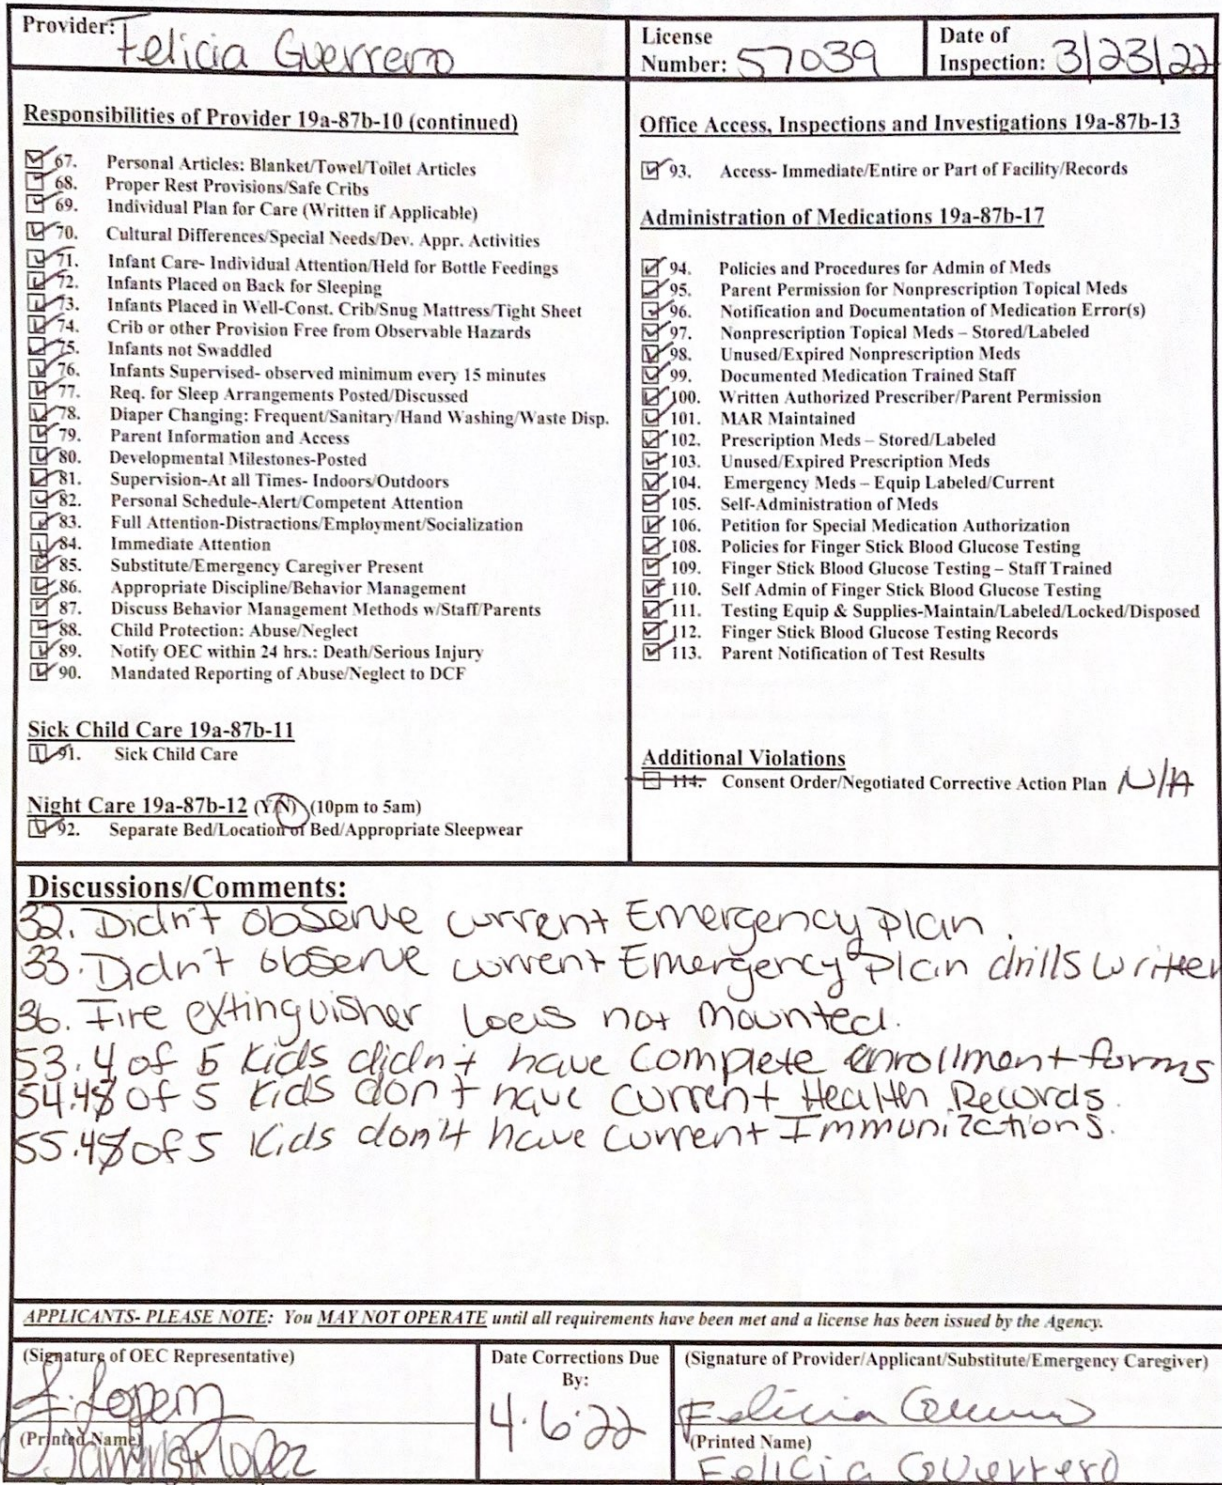 Provider: Felicia Guerrero
License Number: 57039
Date of Inspection: 3/23/22
Responsibilities of Provider 19a-87b-10 (continued)
67. Personal Articles: Blanket/Towel/Toilet Articles
68. Proper Rest Provisions/Safe Cribs
69. Individual Plan for Care (Written if Applicable)
70. Cultural Differences/Special Needs/Dev. Appr. Activities
71. Infant Care- Individual Attention/Held for Bottle Feedings
72. Infants Placed on Back for Sleeping
73. Infants Placed in Well-Const. Crib/Snug Mattress/Tight Sheet
74. Crib or other Provision Free from Observable Hazards
75. Infants not Swaddled
76. Infants Supervised- observed minimum every 15 minutes
77. Req. for Sleep Arrangements Posted/Discussed
78. Diaper Changing: Frequent/Sanitary/Hand Washing/Waste Disp.
79. Parent Information and Access
80. Developmental Milestones-Posted
81. Supervision-At all Times- Indoors/Outdoors
82. Personal Schedule-Alert/Competent Attention
83. Full Attention-Distractions/Employment/Socialization
84. Immediate Attention
85. Substitute/Emergency Caregiver Present
86. Appropriate Discipline/Behavior Management
87. Discuss Behavior Management Methods w/Staff/Parents
88. Child Protection: Abuse/Neglect
89. Notify OEC within 24 hrs.: Death/Serious Injury
90. Mandated Reporting of Abuse/Neglect to DCF
Sick Child Care 19a-87b-11
91. Sick Child Care
Night Care 19a-87b-12 (Y/N) (10pm to 5am)
92. Separate Bed/Location of Bed/Appropriate Sleepwear
Office Access, Inspections and Investigations 19a-87b-13
93. Access- Immediate/Entire or Part of Facility/Records
Administration of Medications 19a-87b-17
94. Policies and Procedures for Admin of Meds
95. Parent Permission for Nonprescription Topical Meds
96. Notification and Documentation of Medication Error(s)
97. Nonprescription Topical Meds – Stored/Labeled
98. Unused/Expired Nonprescription Meds
99. Documented Medication Trained Staff
100. Written Authorized Prescriber/Parent Permission
101. MAR Maintained
102. Prescription Meds – Stored/Labeled
103. Unused/Expired Prescription Meds
104. Emergency Meds – Equip Labeled/Current
105. Self-Administration of Meds
106. Petition for Special Medication Authorization
108. Policies for Finger Stick Blood Glucose Testing
109. Finger Stick Blood Glucose Testing – Staff Trained
110. Self Admin of Finger Stick Blood Glucose Testing
111. Testing Equip & Supplies-Maintain/Labeled/Locked/Disposed
112. Finger Stick Blood Glucose Testing Records
113. Parent Notification of Test Results
Additional Violations
114. Consent Order/Negotiated Corrective Action Plan N/A
Discussions/Comments:
32. Didn't observe current Emergency plan.
33. Didn't observe current Emergency plan drills written
36. Fire extinguisher was not mounted.
53. 4 of 5 kids didn't have complete enrollment forms
54. 4 of 5 kids don't have current Health Records.
55. 4 of 5 kids don't have current Immunizations.
APPLICANTS- PLEASE NOTE: You MAY NOT OPERATE until all requirements have been met and a license has been issued by the Agency.
(Signature of OEC Representative)
J. Lopez
(Printed Name)
Lopez
Date Corrections Due By:
4.6.22
(Signature of Provider/Applicant/Substitute/Emergency Caregiver)
Felicia Guerrero
(Printed Name)
Felicia Guerrero